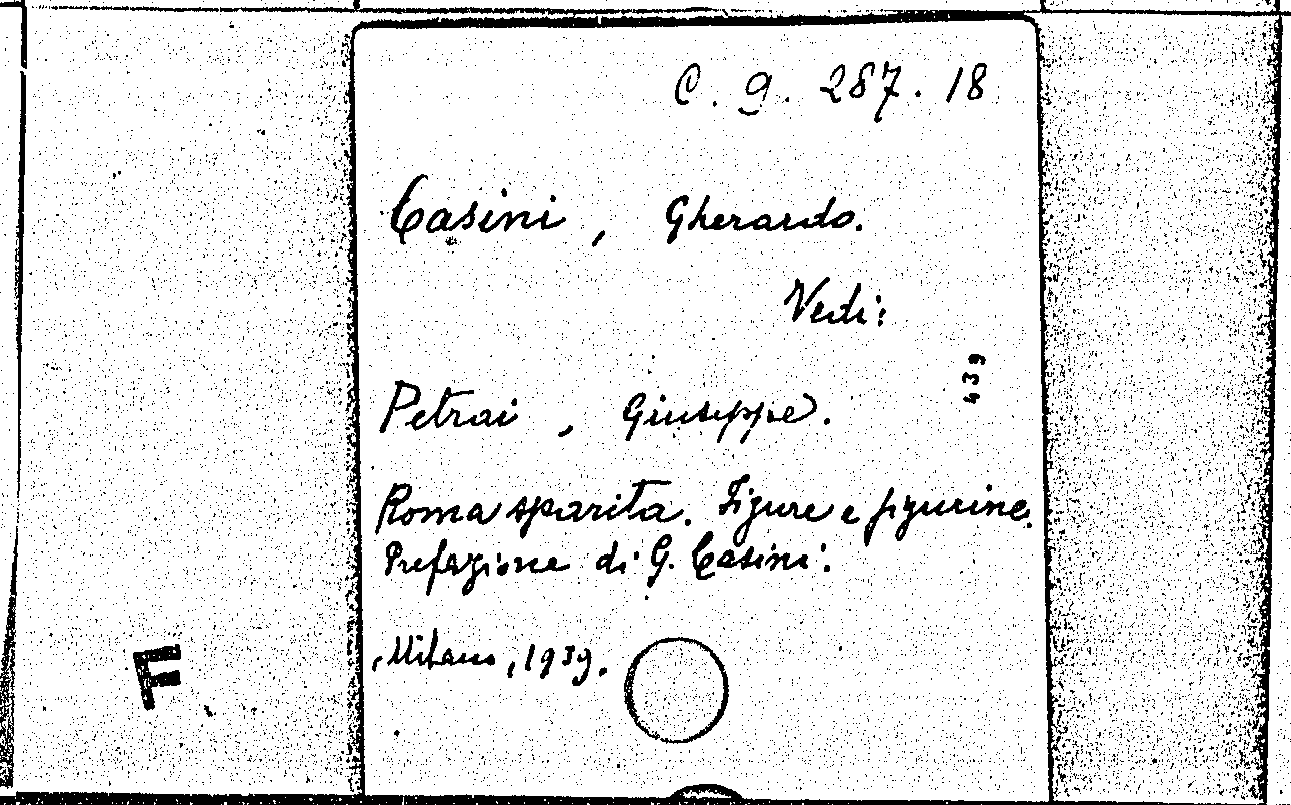 C. 9. 287. 18
Casini, Gherardo.
Vedi:
439
Petrai, Giuseppe.
Roma sparita. Figure e figurine.
Prefazione di G. Casini.
Milano, 1939.
F